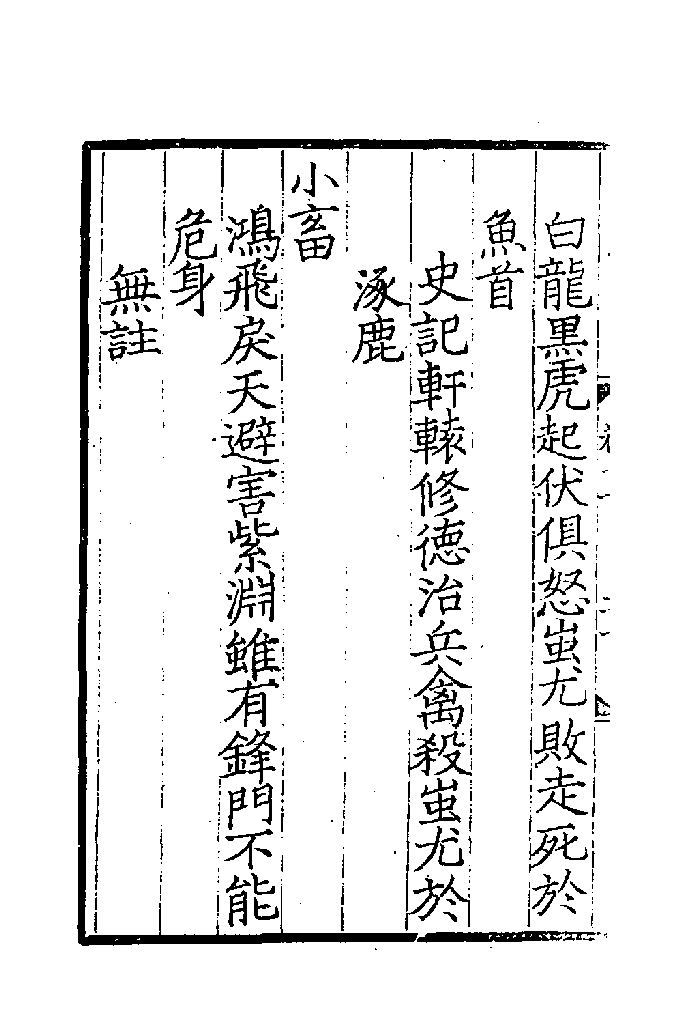 白龍黑虎起伏俱怒蚩尤敗走死於
魚首
史記軒轅修德治兵禽殺蚩尤於
涿鹿
小畜
鴻飛戾天避害紫淵雖有鋒門不能
危身
無註